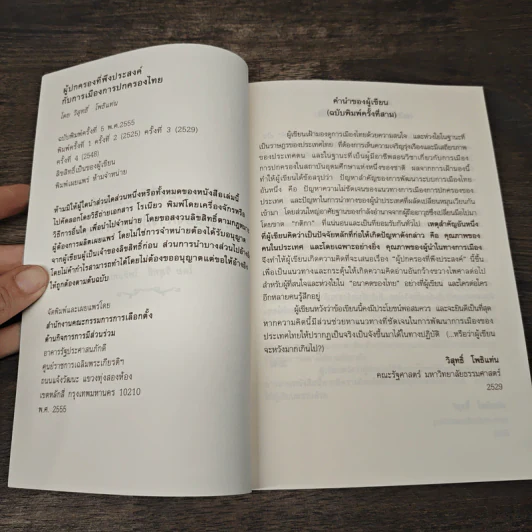 ผู้ปกครองที่พึงประสงค์
กับการเมืองการปกครองไทย
โดย วิสุทธิ์ โพธิแท่น
ฉบับพิมพ์ครั้งที่ 5 พ.ศ.2555
พิมพ์ครั้งที่ 1 ครั้งที่ 2 (2525) ครั้งที่ 3 (2529)
ครั้งที่ 4 (2548)
ลิขสิทธิ์เป็นของผู้เขียน
พิมพ์เผยแพร่ ห้ามจำหน่าย
ห้ามมิให้ผู้ใดนำส่วนใดส่วนหนึ่งหรือทั้งหมดของหนังสือเล่มนี้
ไปคัดลอกโดยวิธีถ่ายเอกสาร โรเนียว พิมพ์โดยเครื่องจักรหรือ
วิธีการอื่นใด เพื่อนำไปจำหน่าย
ผู้ต้องการผลิตเผยแพร่ โดยไม่ใช่การจำหน่ายต้องได้รับอนุญาต
จากผู้ผู้เขียนผู้เป็นเจ้าของลิขสิทธิ์ก่อน
ให้ถูกต้องตามต้นฉบับ
จัดพิมพ์และเผยแพร่โดย
สำนักงานคณะกรรมการการเลือกตั้ง
ด้านกิจการการมีส่วนร่วม
อาคารรัฐประศาสนภักดี
ศูนย์ราชการเฉลิมพระเกียรติฯ
ถนนแจ้งวัฒนะ แขวงทุ่งสองห้อง
เขตหลักสี่ กรุงเทพมหานคร 10210
พ.ศ. 2555
คำนำของผู้เขียน
(ฉบับพิมพ์ครั้งที่สาม)
ผู้เขียนเฝ้ามองดูการเมืองไทยด้วยความสนใจ และห่วงใยในฐานะที่
เป็นราษฎรของประเทศไทย ที่ต้องการเห็นความเจริญรุ่งเรืองและมีเสถียรภาพ
ของประเทศตน และในฐานะที่เป็นผู้มีอาชีพสอนวิชาเกี่ยวกับการเมือง
การปกครองในสถาบันอุดมศึกษาแห่งหนึ่งของชาติ ผลจากการเฝ้ามองนี้
ทำให้ผู้เขียนได้ข้อสรุปว่า ปัญหาสำคัญของการพัฒนาระบบการเมืองไทย
อันหนึ่ง คือ ปัญหาความไม่ชัดเจนของแนวทางการเมืองการปกครองของ
ประเทศ และปัญหาในการนำทางของผู้นำประเทศที่ผลัดเปลี่ยนหมุนเวียนกัน
เข้ามา โดยส่วนใหญ่อาศัยฐานของกำลังอำนาจจากผู้ยึดอาวุธซึ่งเปลี่ยนมือไปมา
โดยขาด "กติกา" ที่แน่นอนและเป็นที่ยอมรับกันทั่วไป เหตุสำคัญอันหนึ่ง
ที่ผู้เขียนคิดว่าเป็นปัจจัยหลักที่ก่อให้เกิดปัญหาดังกล่าว คือ คุณภาพของ
คนในประเทศ และโดยเฉพาะอย่างยิ่ง คุณภาพของผู้นำในทางการเมือง
จึงทำให้ผู้เขียนเกิดความคิดที่จะเสนอเรื่อง "ผู้ปกครองที่พึงประสงค์" นี้ขึ้น
เพื่อเป็นแนวทางและกระตุ้นให้เกิดความคิดอ่านอันกว้างขวางไพศาลต่อไป
สำหรับผู้ที่สนใจและห่วงใย ใน "อนาคตของไทย" อย่างที่ผู้เขียน และใครต่อใคร
อีกหลายคนรู้สึกอยู่
ผู้เขียนหวังว่าข้อเขียนนี้คงมีประโยชน์พอสมควร และจะยินดีเป็นที่สุด
หากความคิดนี้มีส่วนช่วยหาแนวทางที่ชัดเจนในการพัฒนาการเมืองของ
ประเทศไทยให้ปรากฏเป็นจริงเป็นจังขึ้นมาได้ในทางปฏิบัติ (...หรือว่าผู้เขียน
จะหวังมากเกินไป?)
วิสุทธิ์ โพธิแท่น
คณะรัฐศาสตร์ มหาวิทยาลัยธรรมศาสตร์
2529